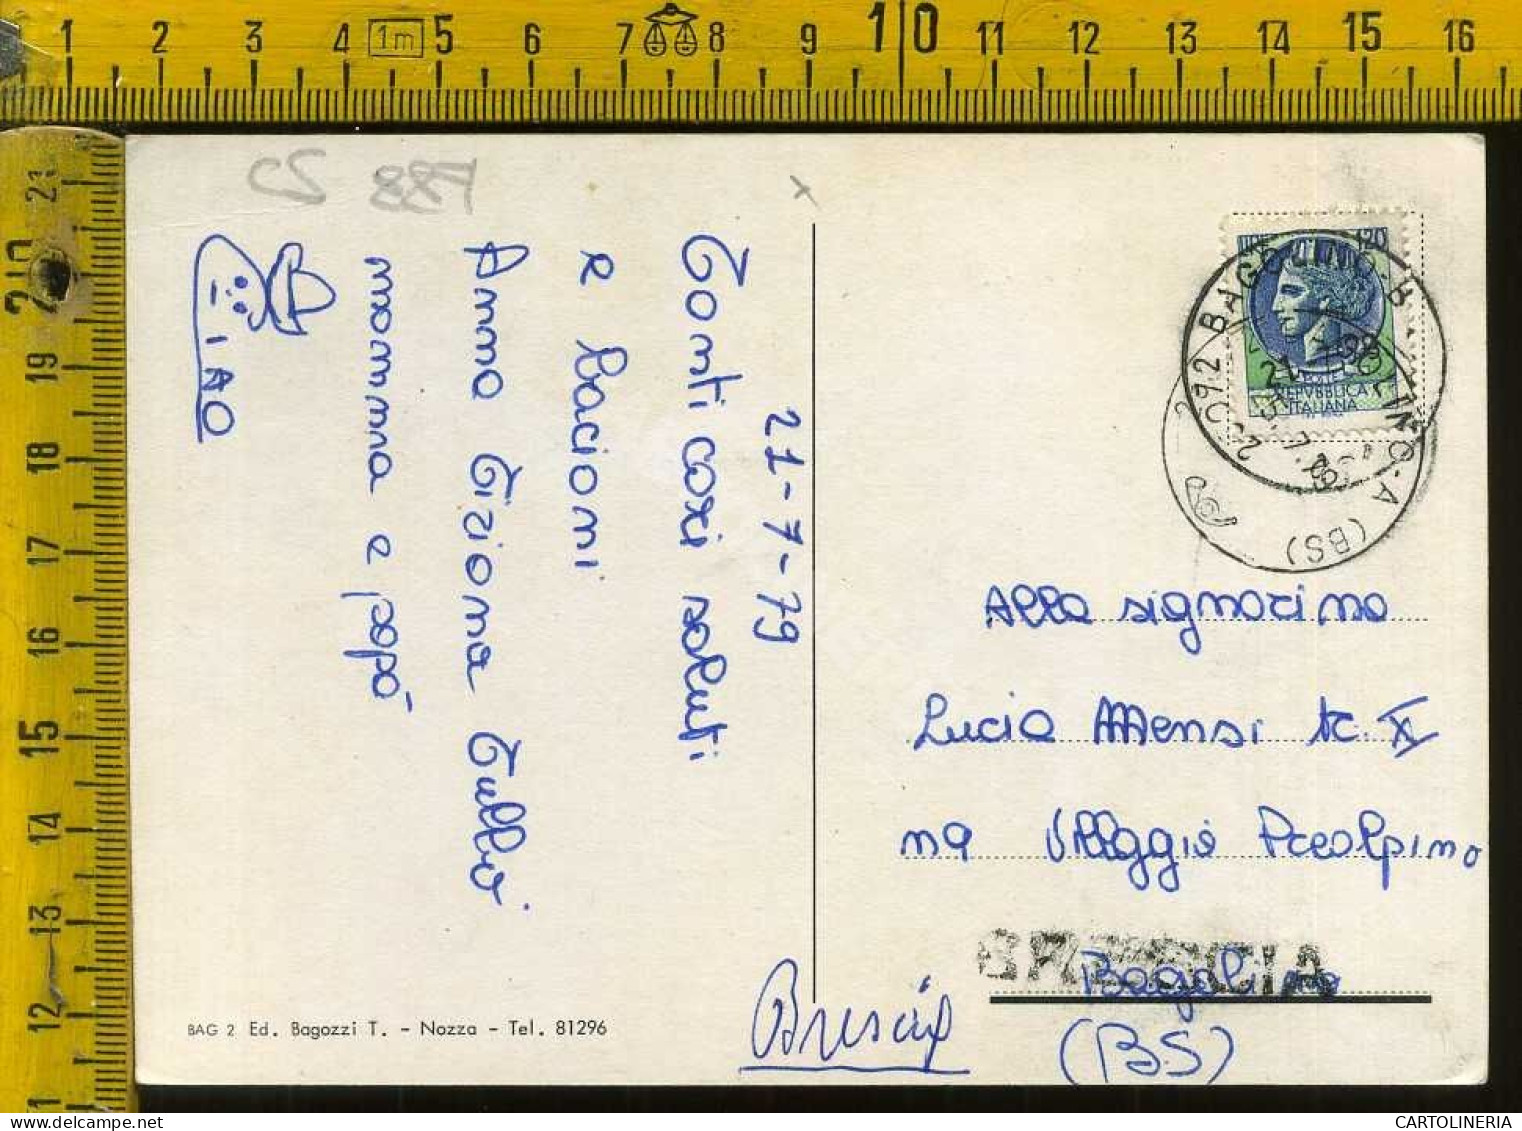 1 2 3 4 1m 5 6 7 8 9 10 11 12 13 14 15 16
21
20
19
18
17
16
15
14
13
12
11
CS 887
21-7-79
Tonti cari saluti
e bacioni
Anna Tiziana Tullio
mamma e papà
CIAO
LIRE 120
POSTE
REPVBBLICA
ITALIANA
BAGOLINO-A (BS)
Alla signorina
Lucia Mensi
Villaggio Prealpino
BRESCIA
Bagolino
(BS)
Brescia
BAG 2 Ed. Bagozzi T. - Nozza - Tel. 81296
CARTOLINERIA